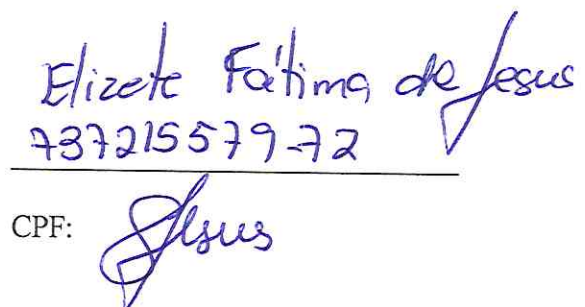 Elizete Fátima de Jesus
737215579-72
CPF: Jesus